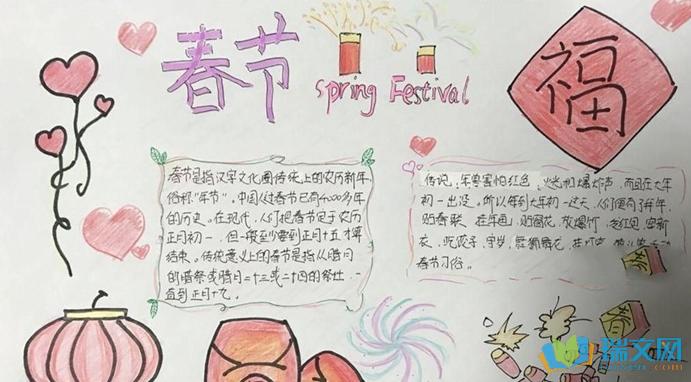 春节
Spring Festival
福
春节是指汉字文化圈传统上的农历新年
俗称"年节"。中国人过春节已有4000多年
的历史。在现代,人们把春节定于农历
正月初一,但一般至少要到正月十五才算
结束。传统意义上的春节是指从腊月
的腊祭或腊月二十三或二十四的祭灶,一
直到正月十九。
传说,年兽害怕红色、火光和爆炸声,而且在大年
初一出没,所以每到大年初一这天,人们便有了拜年、
贴春联、挂年画、贴窗花、放爆竹、发红包、穿新
衣、吃饺子、守岁、舞狮舞龙、挂灯
春节习俗。
春
瑞文网